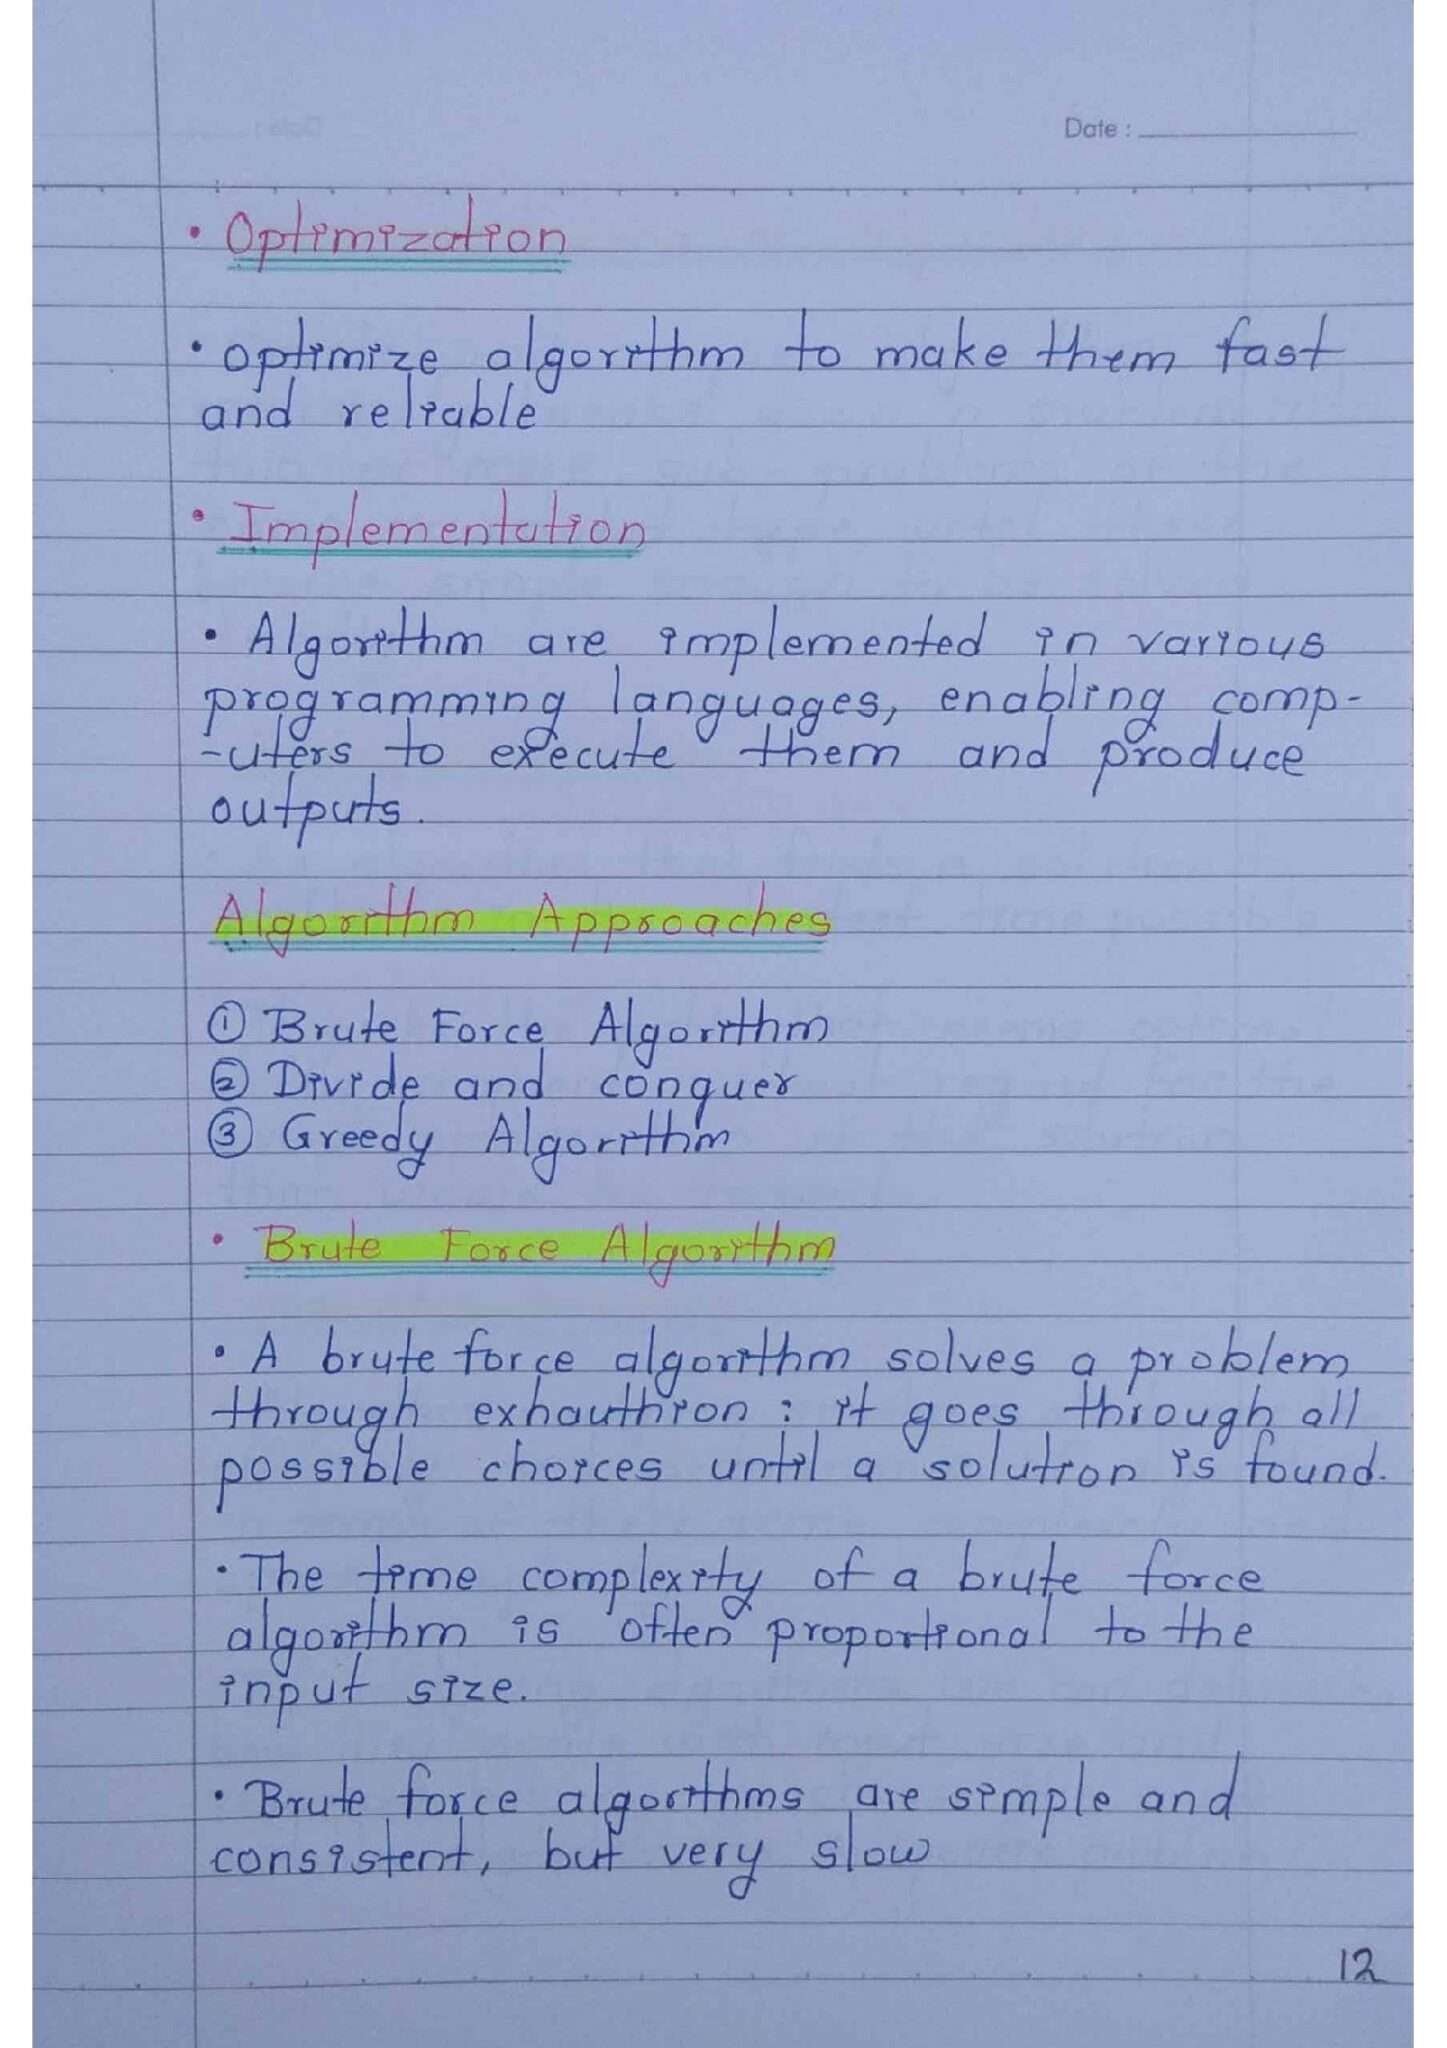 Date :
• Optimization
• optimize algorithm to make them fast
and reliable
• Implementation
• Algorithm are implemented in various
programming languages, enabling comp-
-uters to execute them and produce
outputs.
Algorithm Approaches
① Brute Force Algorithm
② Divide and conquer
③ Greedy Algorithm
• Brute Force Algorithm
• A brute force algorithm solves a problem
through exhauthion : it goes through all
possible choices until a solution is found.
• The time complexity of a brute force
algorithm is often proportional to the
input size.
• Brute force algorithms are simple and
consistent, but very slow
12